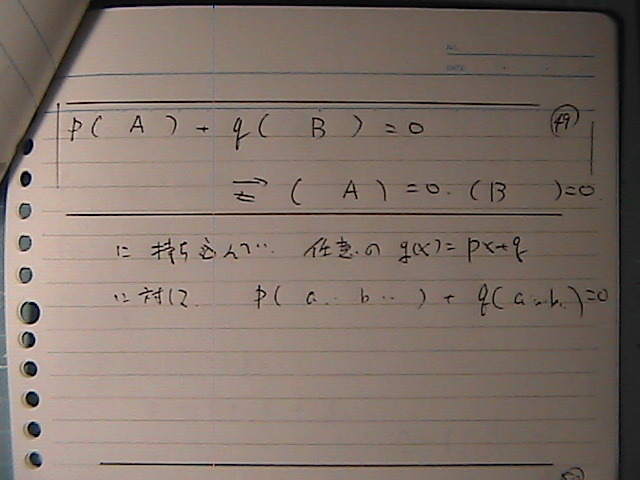 NO.
DATE
p( A ) + q( B ) = 0 49
⇄ ( A ) = 0. ( B ) = 0
に 持ち込んで… 任意の g(x) = px+q
に対して p( a.. b.. ) + q( a.. b.. ) = 0